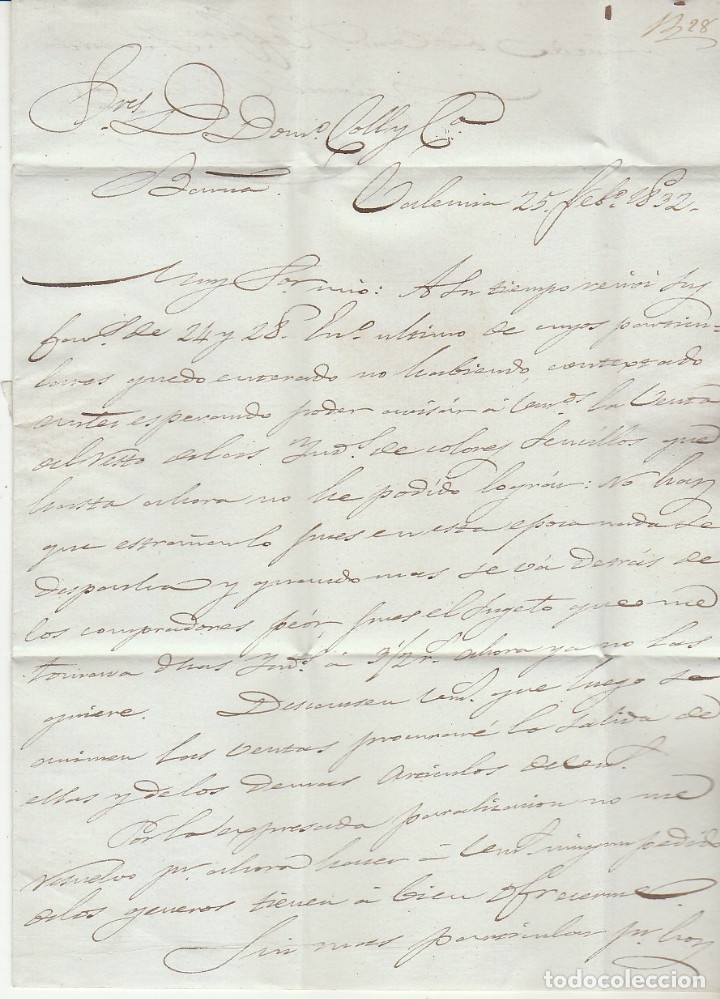 R 28
Sres. Dn. Domo. Coll y Ca.
Barna.
Valencia 25. Febo. 1832.
Muy Sor. mio: A su tiempo recivi sus
favs. de 24 y 28. Eno. ultimo de cuyos particu-
lares quedo enterado no habiendo contextado
antes esperando poder avisár á Vms. la Venta
del resto de las Ynds. de colores sencillos que
hasta ahora no he podido lográr: No hay
que estrañarlo pues en esta epoca nada se
despacha y quando mas se vá detrás de
los compradores peór pues el sugeto que me
tomava dhas Ynds. á 3 1/2 rs. ahora ya no las
quiere. Descuiden Vms. que luego se
animen las ventas procuraré la salida de
ellas y de los demas Articulos de Vms.
Por la expresada paralizacion no me
resuelvo pr. ahora hacer á Vms. ningun pedido
de los generos tienen á bien ofrecerme.
Sin mas particular pr. hoy
todocoleccion.net